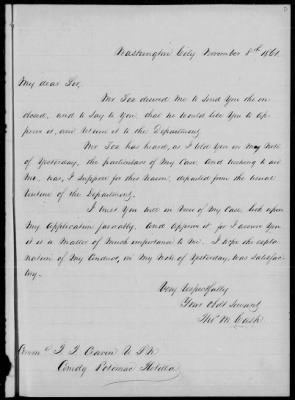 Washington City November 8th 1861.
My dear Sir,
Mr Fox desired me to send you the en-
closed, and to say to you, that he would like you to ap-
prove it, and return it to the Department.
Mr Fox has heard, as I told you in my Note
of Yesterday, the particulars of my Case, and
me, was, I suppose for this reason, departed from the usual
routine of the Department.
I trust you will in view of my Case, look upon
my application favorably. And approve it for I assure you
it is a matter of much importance to me. I hope the expla-
nation of my Conduct, in my Note of Yesterday, was satisfac-
tory.
Very respectfully
Your Obt Servant
Thos M. Cash
Comr T. T. Craven U.S.N.
Comdg Potomac Flotilla